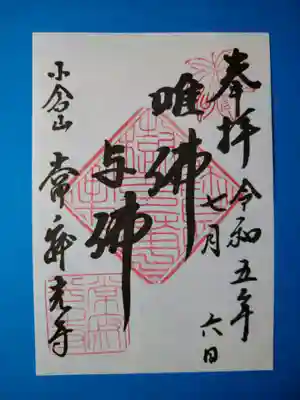 奉拝
令和五年
七月六日
唯佛
与佛
小倉山
常寂光寺